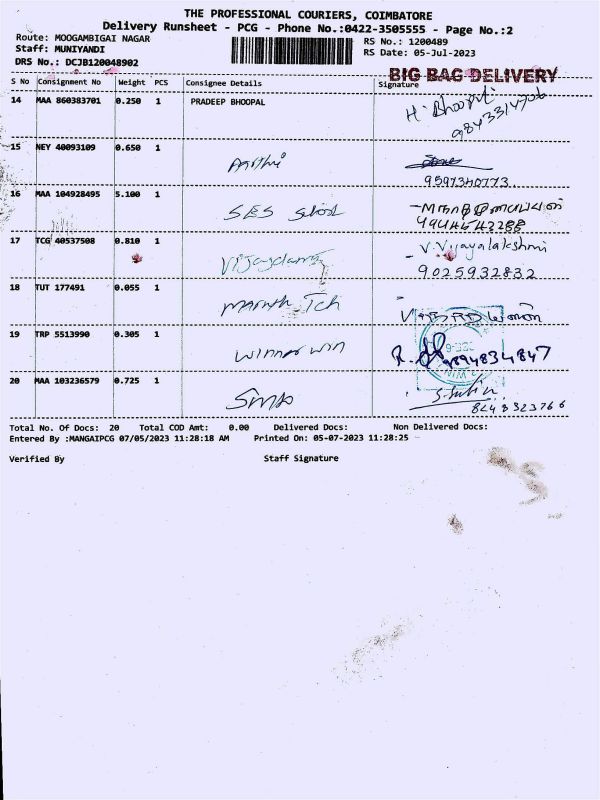 THE PROFESSIONAL COURIERS, COIMBATORE
Delivery Runsheet - PCG - Phone No.:0422-3505555 - Page No.:2
Route: MOOGAMBIGAI NAGAR
RS No.: 1200489
Staff: MUNIYANDI
RS Date: 05-Jul-2023
DRS No.: DCJB120048902
BIG BAG DELIVERY
S No Consignment No Weight PCS Consignee Details Signature
14 MAA 860383701 0.250 1 PRADEEP BHOOPAL
9843314706
15 NEY 40093109 0.650 1 Aarthi
9597340773
16 MAA 104928495 5.100 1 SES School
17 TCG 40537508 0.810 1 V. Vijayalakshmi
9025932832
18 TUT 177491 0.055 1
19 TRP 5513990 0.305 1 winner win R. 9894834847
20 MAA 103236579 0.725 1
8248323766
Total No. Of Docs: 20 Total COD Amt: 0.00 Delivered Docs: Non Delivered Docs:
Entered By :MANGAIPCG 07/05/2023 11:28:18 AM Printed On: 05-07-2023 11:28:25
Verified By Staff Signature